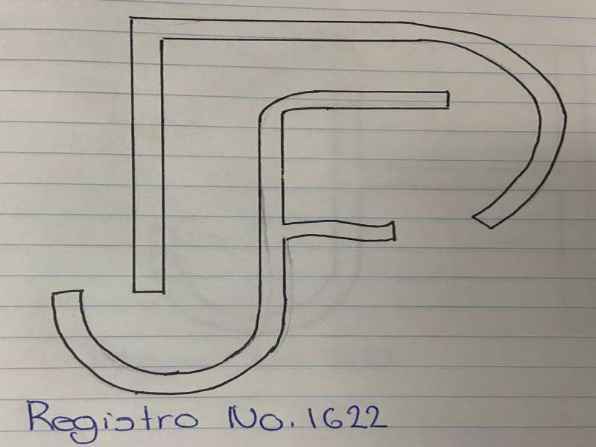 Registro No. 1622